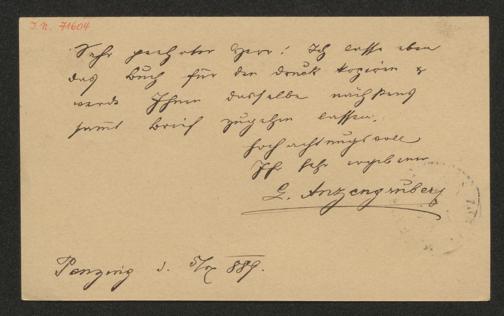 J.N. 71604
Sehr geehrter Herr! Ich lasse eben
das Buch für den Druck kopieren &
werde Ihnen dasselbe nächstens
sammt Brief zugehen lassen.
Hochachtungsvoll
Ihr sehr ergebener
L. Anzengruber
Penzing d. 5/ 889.